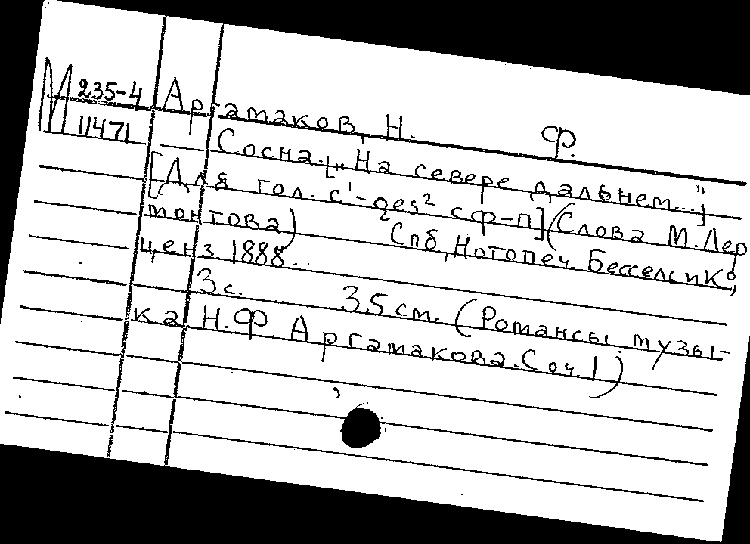 М 235-4 Аргамаков, Н. Ф.
11471 Сосна. [„На севере дальнем..."]
[Для гол. c¹-des² с ф-п] (Слова М. Лер
монтова) Спб, Нотопеч. Бессель и К°,
ценз. 1888.
3 с. 35 см. (Романсы. музы-
ка Н. Ф Аргамакова. Соч. 1)